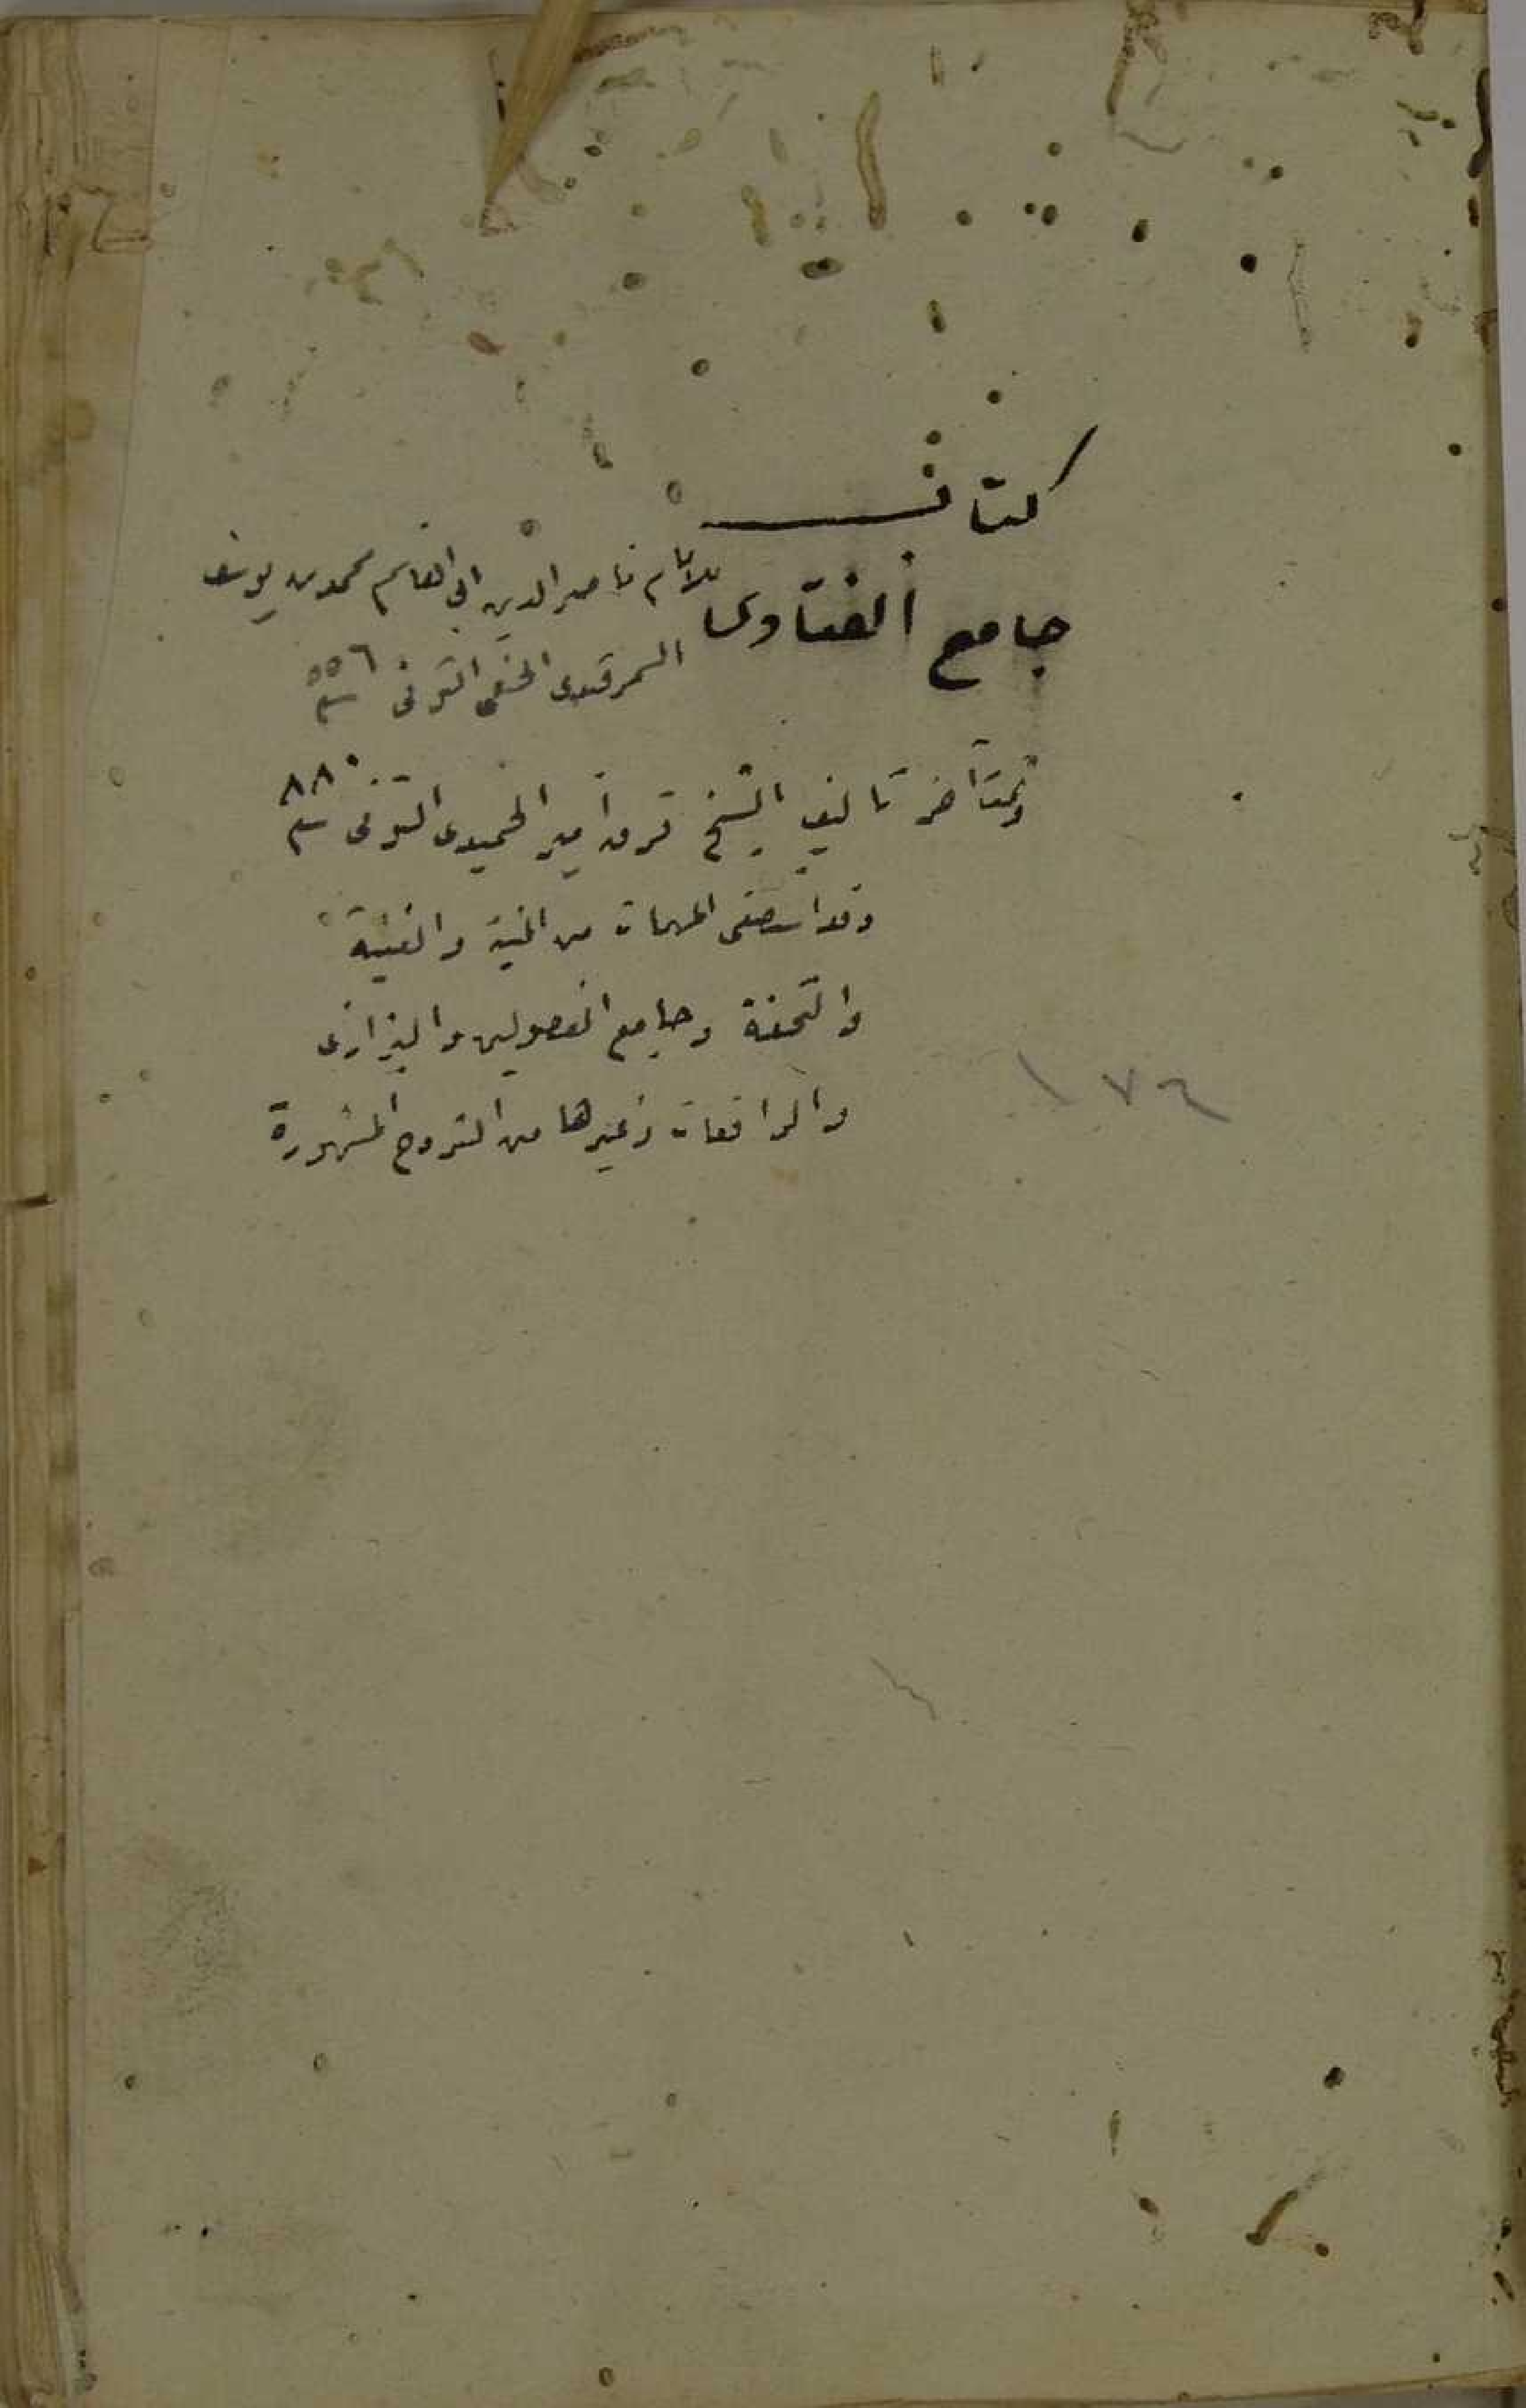 كتاب
جامع الفتاوى
للامام ناصر الدين ابى القاسم محمد بن يوسف
السمرقندى الحنفى المتوفى سنة ٥٥٦
تأليف الشيخ قرق أمير الحميدى المتوفى سنة ٨٨٠
وقد استصفى المهمات من المنية والقنية
والتحفة وجامع الفصولين والبزازى
والواقعات وغيرها من الشروح المشهورة
١٧٤